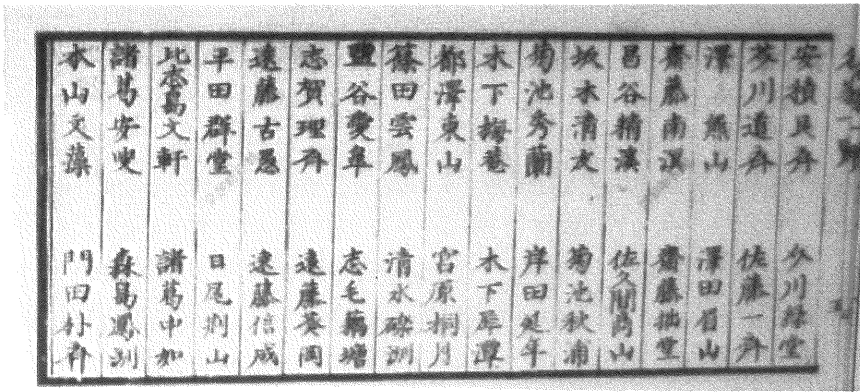 安積艮斉 川緑堂
芥川道斉 佐藤一斉
澤 熊山 澤田眉山
齋藤南溟 齋藤拙堂
昌谷精溪 佐久間象山
坂本清友 菊池秋浦
菊池秀蘭 岸田延年
木下梅菴 木下犀潭
都澤東山 宮原桐月
篠田雲鳳 清水礫洲
鹽谷 志毛塘
志賀理斉 遠藤葵岡
遠藤古愚 遠藤信成
平田群堂 日尾荊山
比 島文軒 諸葛中如
諸葛安叟 森島鳳洲
水山文藻 門田朴斉